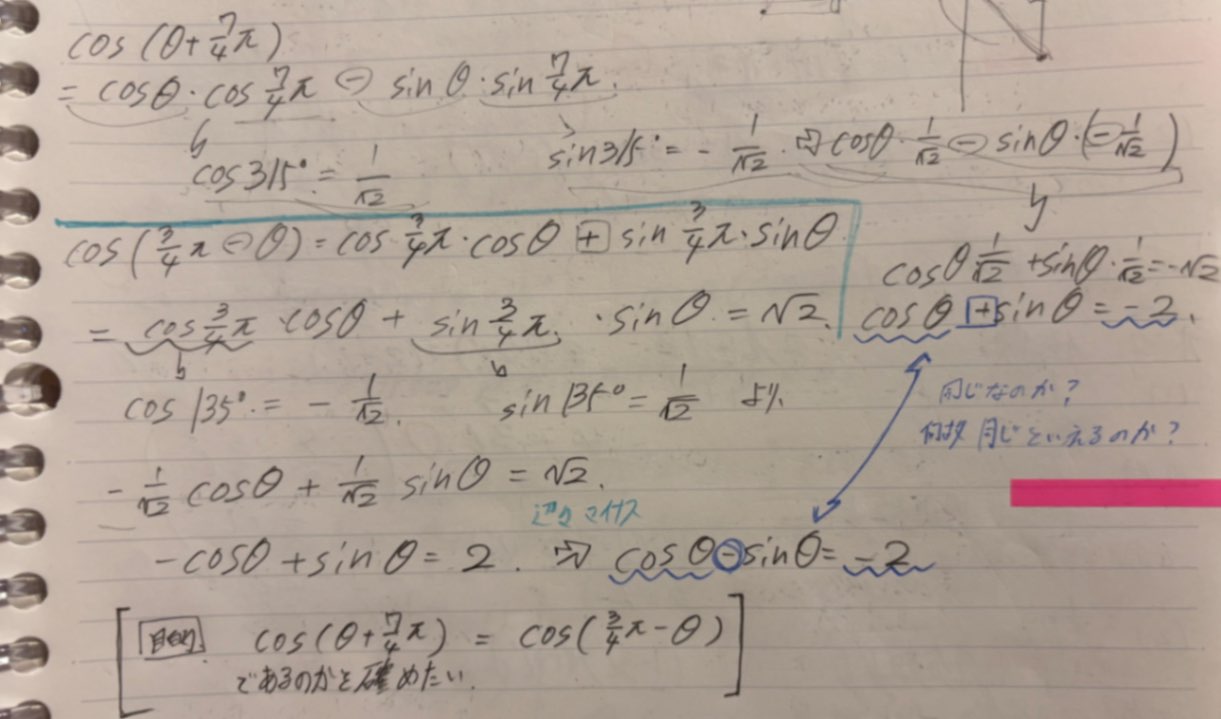 cos(θ+7/4π)
= cosθ・cos7/4π ⊖ sinθ・sin7/4π.
cos315°= 1/√2
sin315°= -1/√2. ⇨ cosθ・1/√2 ⊖ sinθ・(⊖1/√2)
cosθ1/√2 +sinθ・1/√2=-√2
cosθ+sinθ=-2.
cos(3/4π⊖θ)=cos3/4π・cosθ+sin3/4π・sinθ
= cos3/4π・cosθ+ sin3/4π.・sinθ.=√2.
cos135°.= -1/√2. sin135°=1/√2 より
同じなのか?
何故同じといえるのか?
-1/√2cosθ+1/√2 sinθ=√2.
辺々マイナス
-cosθ+sinθ=2. ⇨ cosθ⊖sinθ=-2
目的 cos(θ+7/4π) = cos(3/4π-θ)
であるのかを確めたい.